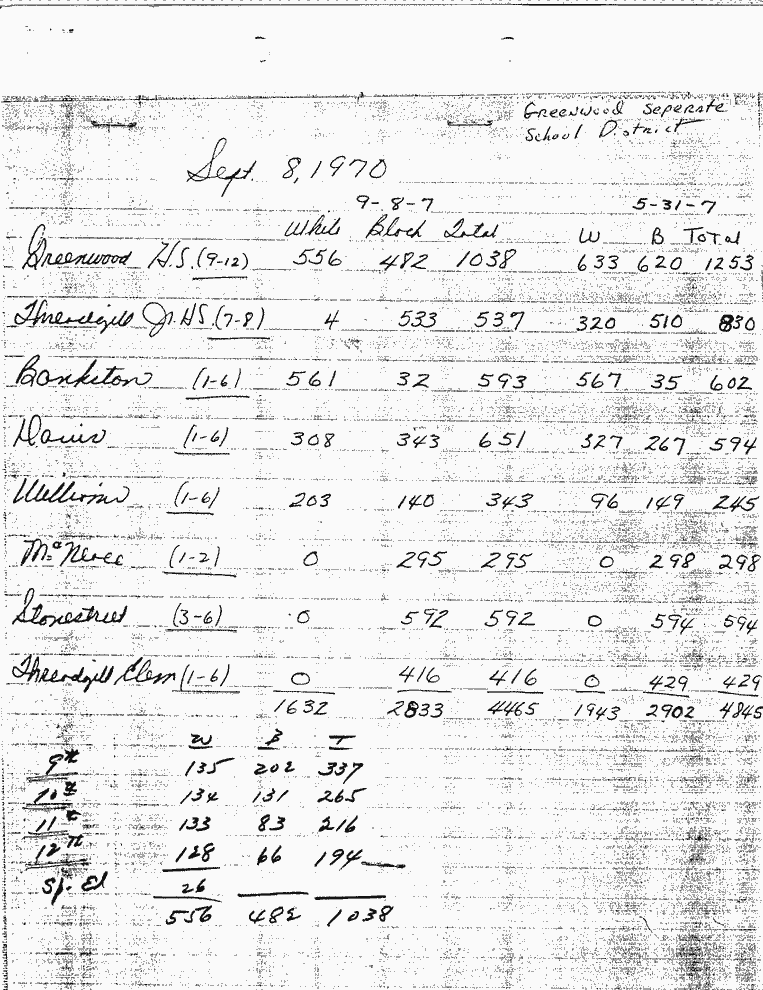 Greenwood Seperate
School District
Sept. 8, 1970
9-8-7 5-31-7
White Black Total W B Total
Greenwood H.S. (9-12) 556 482 1038 633 620 1253
Threadgill Jr. H.S. (7-8) 4 533 537 320 510 830
Bankston (1-6) 561 32 593 567 35 602
Davis (1-6) 308 343 651 327 267 594
Williams (1-6) 203 140 343 96 149 245
(1-2) 0 295 295 0 298 298
Stonestreet (3-6) 0 592 592 0 594 594
Threadgill Elem (1-6) 0 416 416 0 429 429
1632 2833 4465 1943 2902 4845
W B T
9th 135 202 337
10th 134 131 265
11th 133 83 216
12th 128 66 194
Sp. Ed 26
556 482 1038